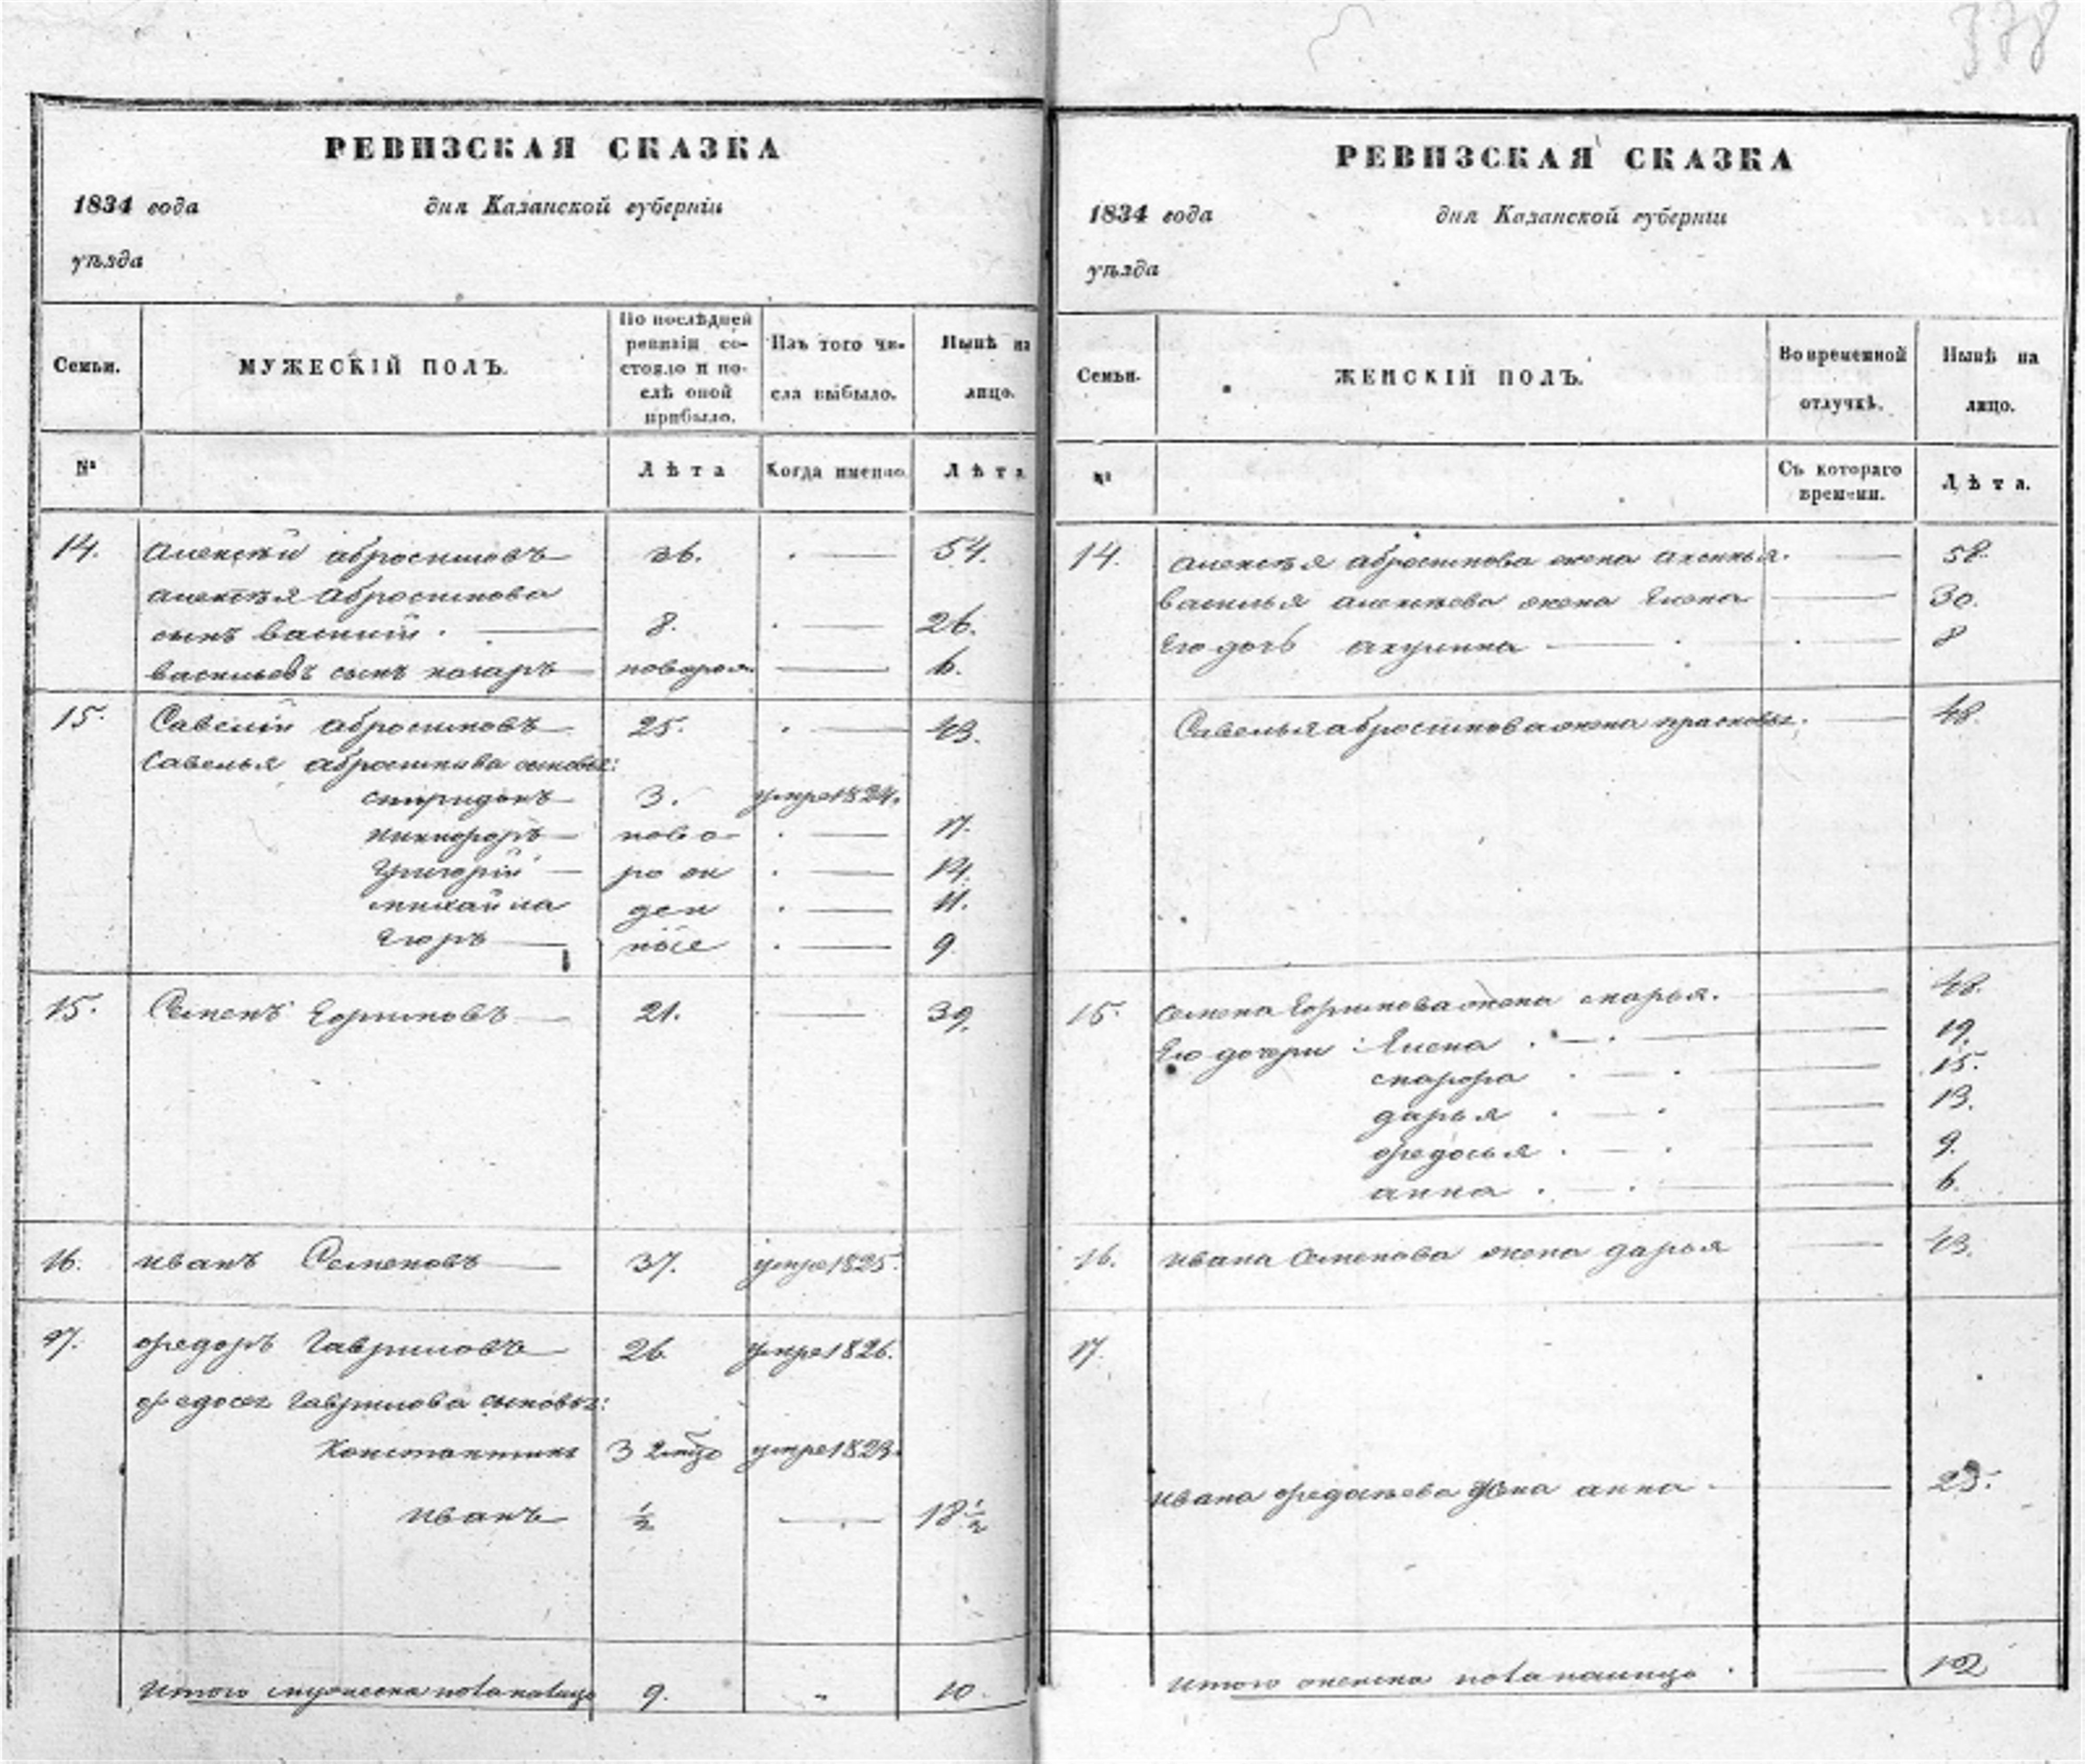 378
РЕВИЗСКАЯ СКАЗКА
1834 года дня Казанской губерніи
уѣзда
Семьи. МУЖЕСКІЙ ПОЛЪ. По послѣдней ревизіи состояло и послѣ оной прибыло. Изъ того числа выбыло. Нынѣ на лицо.
№ Лѣта Когда именно. Лѣта
14. Алексѣй абросимовъ 36. 54.
алексѣя Абросимова
сынъ василій. 8. 26.
васильевъ сынъ назаръ новорож 6.
15. Савелій абросимовъ 25. 43.
Савелья абросимова сыновья:
спиридонъ 3. умре 1824.
никифоръ ново 17.
григорій рож 14.
михайла ден 11.
Егоръ ные 9.
15. Семенъ Ефримовъ 21. 39.
16. иванъ Семеновъ 37. умре 1825.
17. федоръ Гавриловъ 26. умре 1826.
Гаврилова сыновья:
Константинъ 3 умре 1823.
иванъ ½ 18½
Итого мужеска пола налицо 9. " 10.
РЕВИЗСКАЯ СКАЗКА
1834 года дня Казанской губерніи
уѣзда
Семьи. ЖЕНСКІЙ ПОЛЪ. Во временной отлучкѣ. Нынѣ на лицо.
№ Съ котораго времени. Лѣта.
14. алексѣя абросимова жена аксинья. 58.
василья алексѣева жена Елена 30.
Его дочь акулина 8
Савелья абросимова жена прасковья. 48.
15. семена Ефримова жена марья. 48.
Его дочери: Елена 19.
марфа 15.
дарья 13.
федосья 9.
анна 6.
16. ивана Семенова жена дарья 43.
17.
ивана жена анна 23.
Итого женска пола налицо 12